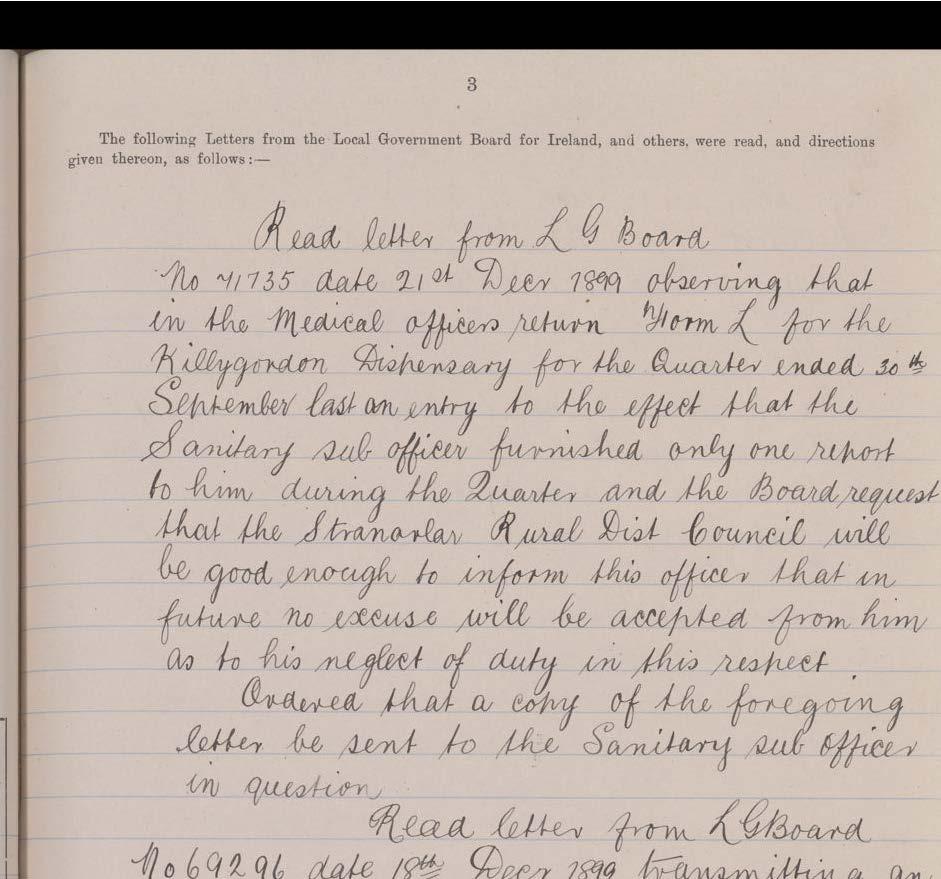 3
The following Letters from the Local Government Board for Ireland, and others, were read, and directions
given thereon, as follows:—
Read letter from L G Board
No 71735 date 21st Decr 1899 observing that
in the Medical officers return "Form L for the
Killygordon Dispensary for the Quarter ended 30th
September last an entry to the effect that the
Sanitary sub officer furnished only one report
to him during the Quarter and the Board request
that the Stranorlar Rural Dist Council will
be good enough to inform this officer that in
future no excuse will be accepted from him
as to his neglect of duty in this respect
Ordered that a copy of the foregoing
letter be sent to the Sanitary sub officer
in question
Read letter from L G Board
No 69296 date 18th Decr 1899 transmitting an